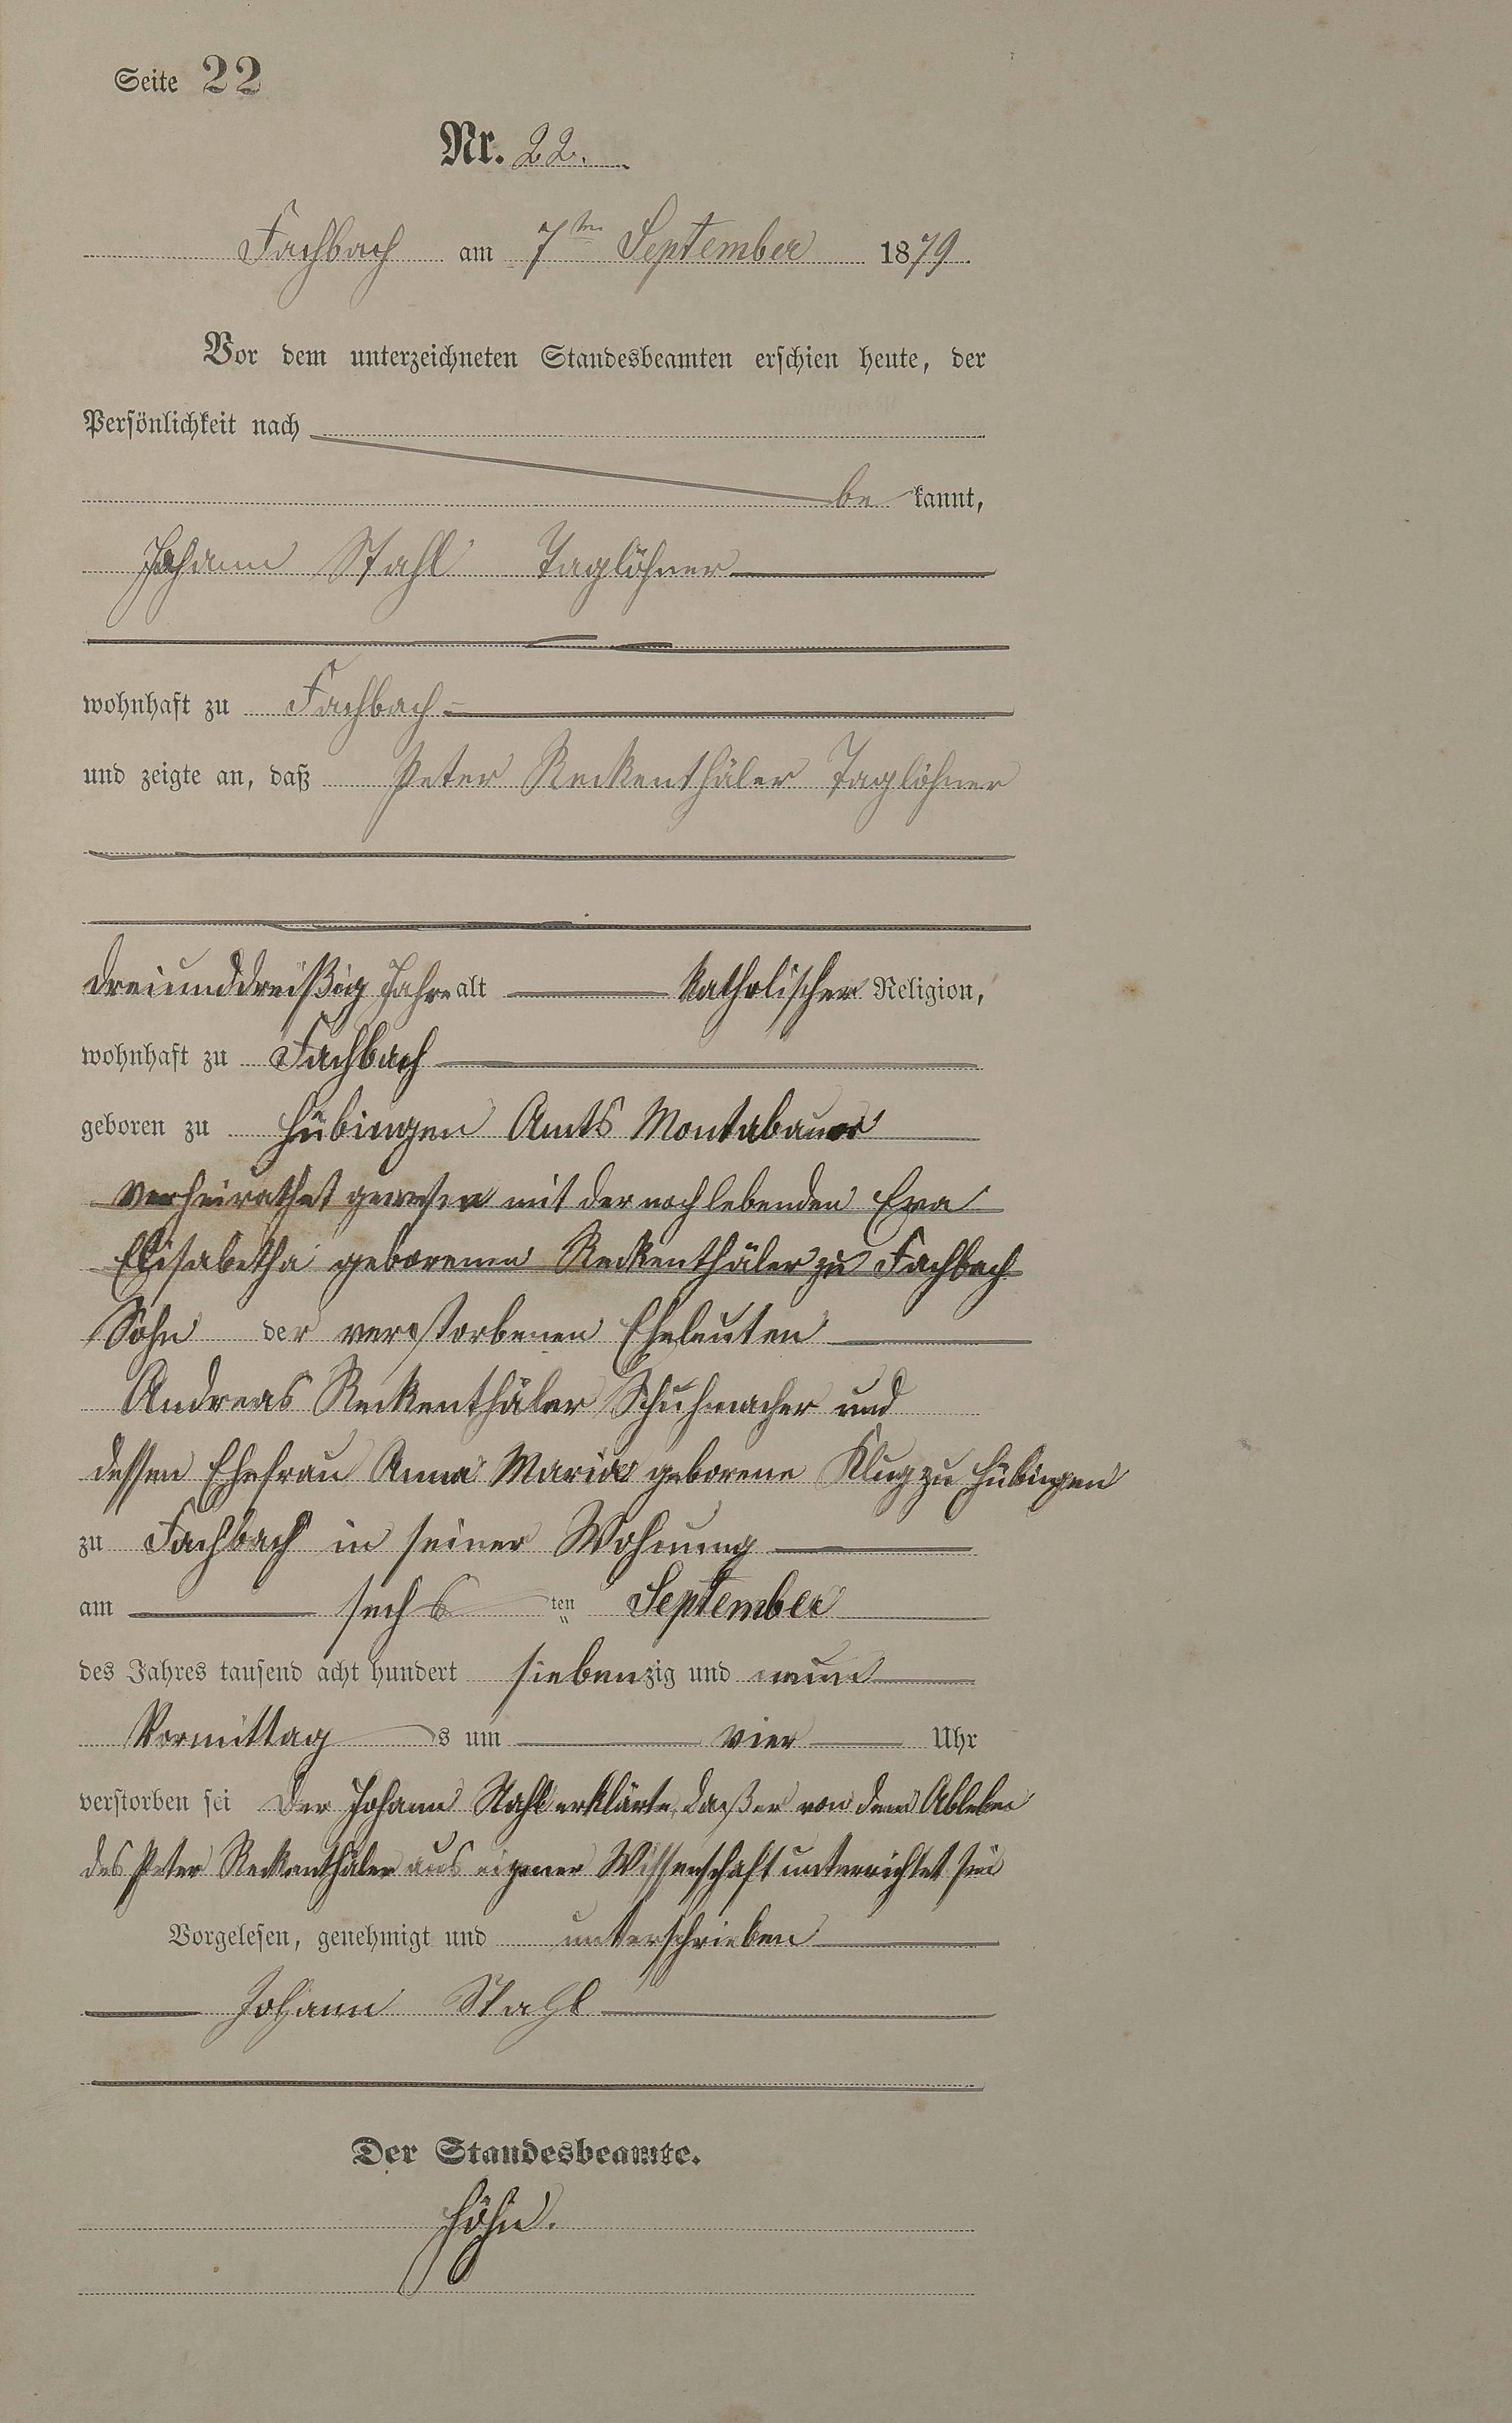 Seite 22
Nr. 22.
Fachbach am 7ten September 1879.
Vor dem unterzeichneten Standesbeamten erschien heute, der
Persönlichkeit nach
be kannt,
Johann Stahl Taglöhner
wohnhaft zu Fachbach
und zeigte an, daß Peter Reckenthäler Taglöhner
dreiunddreißig Jahre alt katholischer Religion,
wohnhaft zu Fachbach
geboren zu Hübingen Amts Montabaur
verheirathet gewesen mit der noch lebenden Eva
Elisabetha geborenen Reckenthäler zu Fachbach
Sohn der verstorbenen Eheleuten
Andreas Reckenthäler Schuhmacher und
dessen Ehefrau Anna Maria geborene Klug zu Hübingen
zu Fachbach in seiner Wohnung
am sechsten September
des Jahres tausend acht hundert siebenzig und neun
Vormittags um vier Uhr
verstorben sei Der Johann Stahl erklärte, daß er von dem Ableben
des Peter Reckenthäler aus eigener Wissenschaft unterrichtet sei
Vorgelesen, genehmigt und unterschrieben
Johann Stahl
Der Standesbeamte.
Höhn.